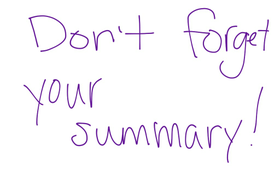 Don't forget
your
summary!